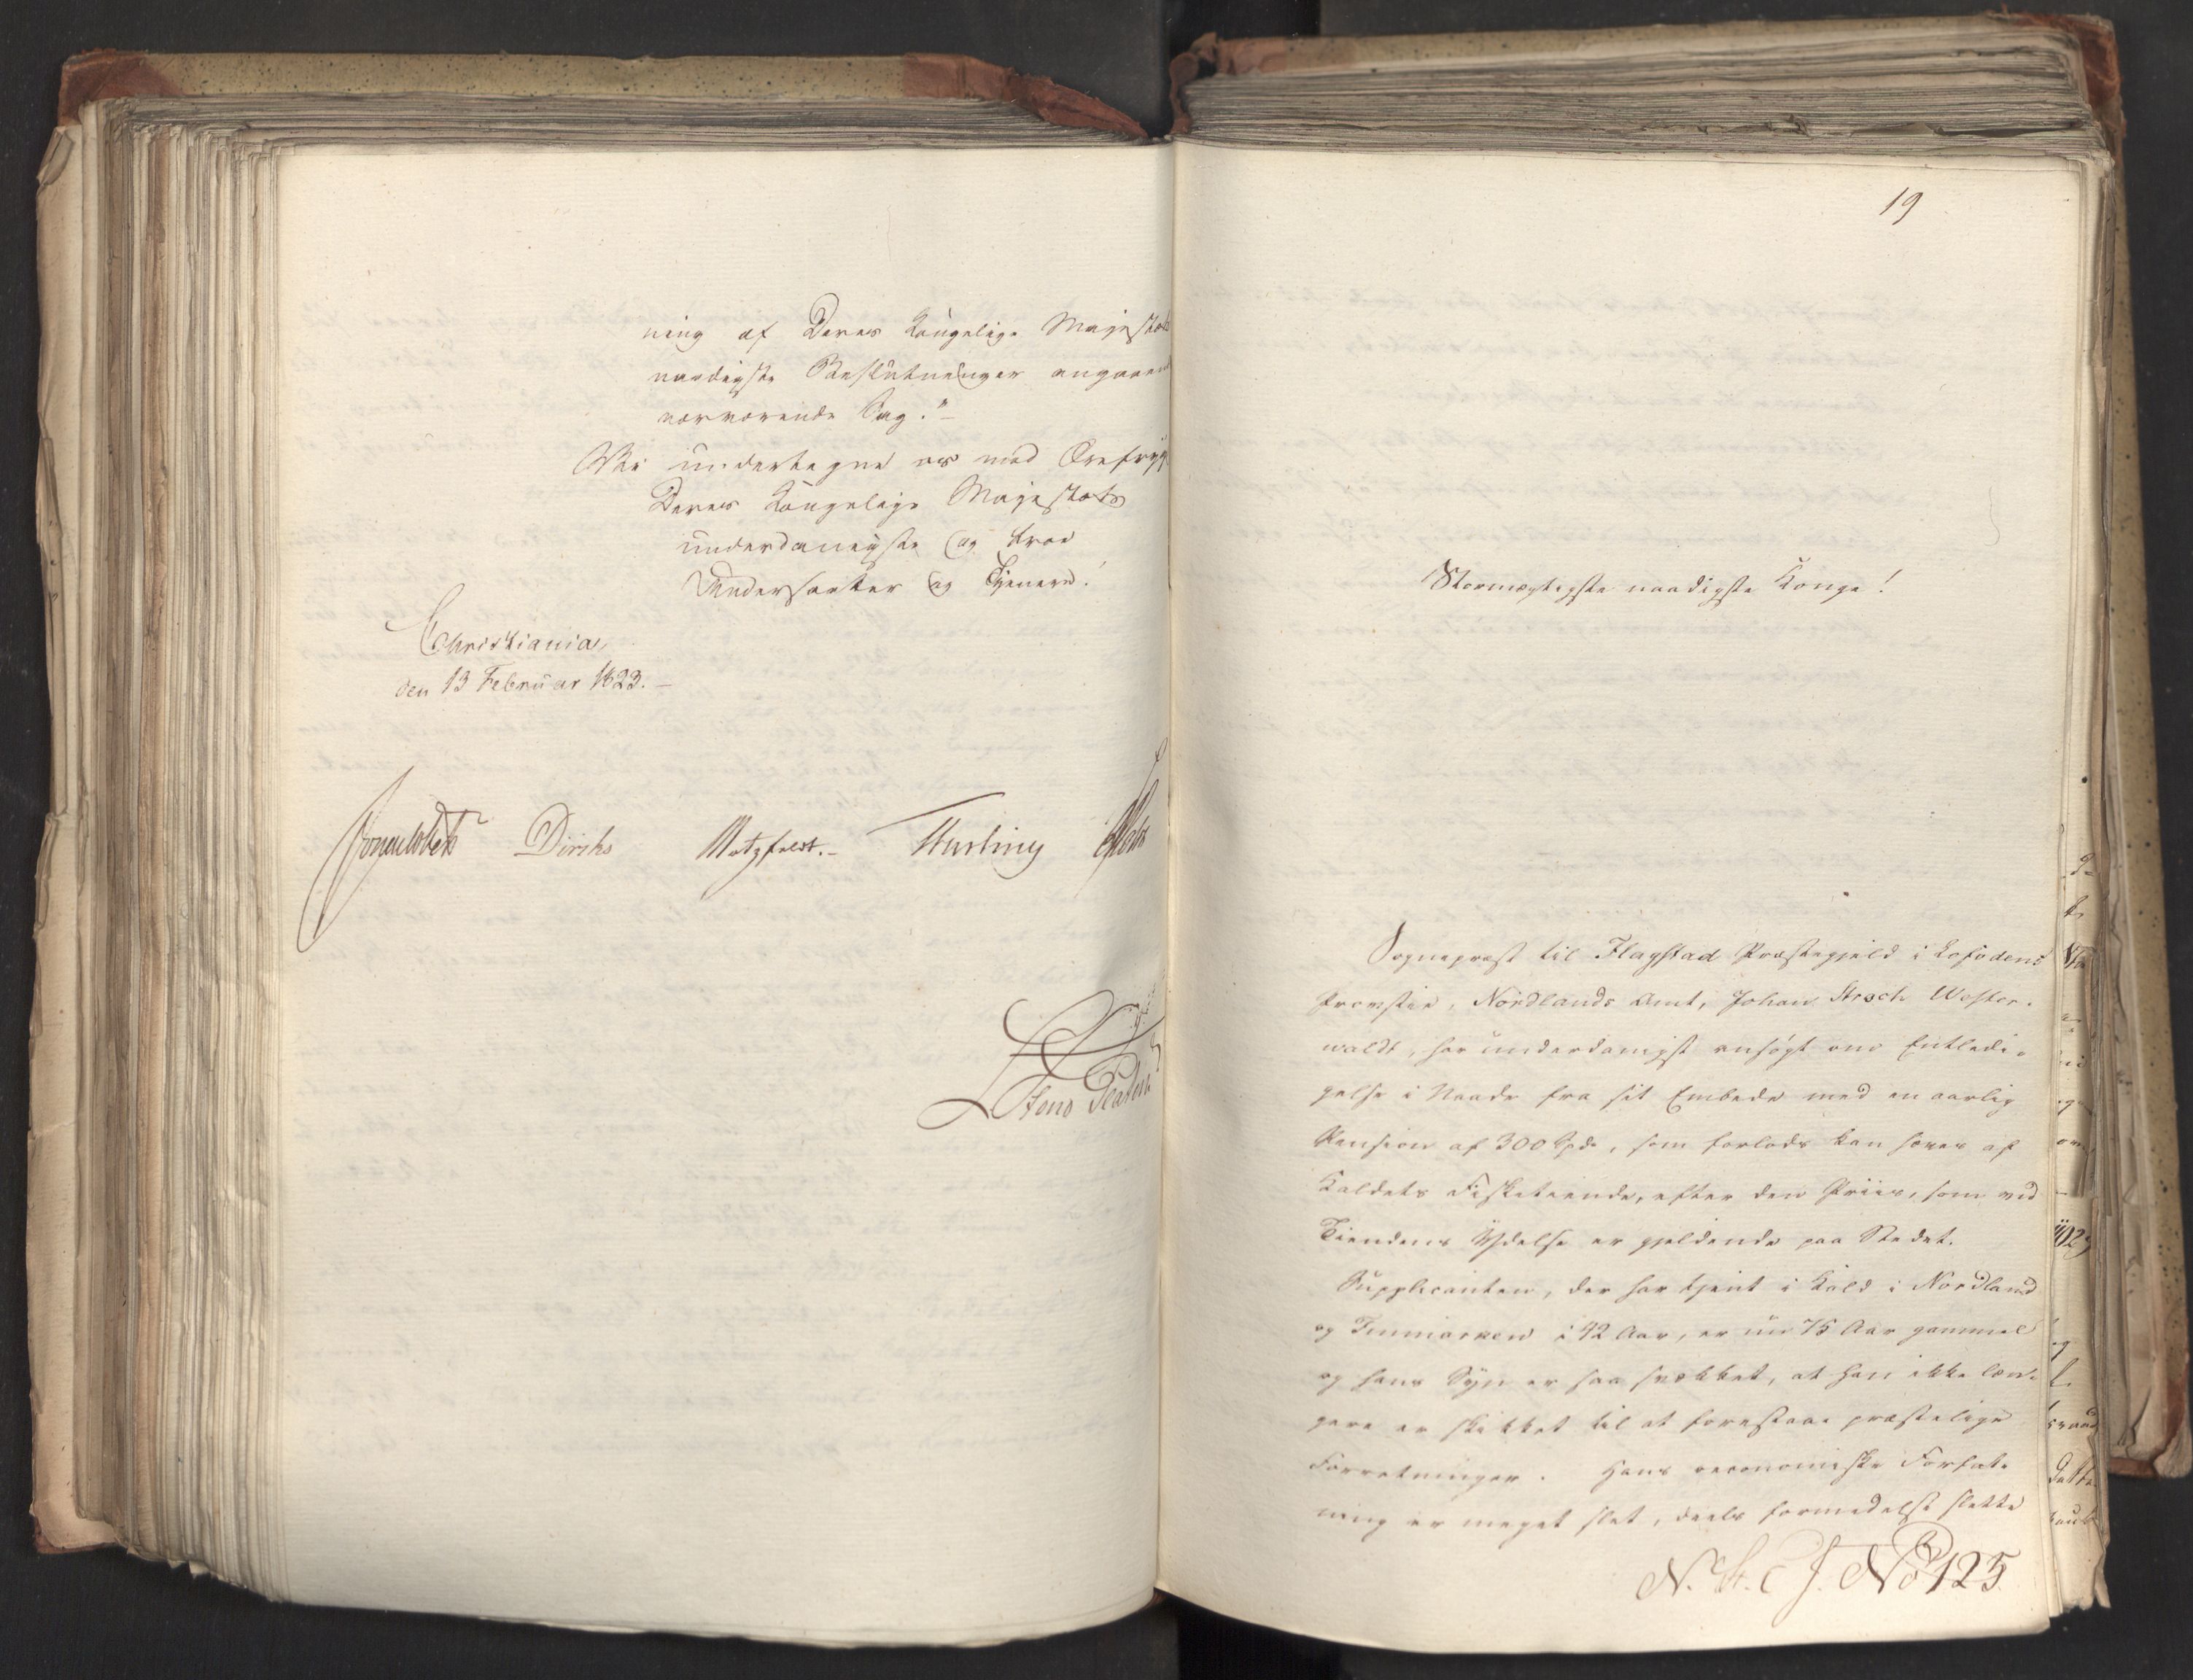 ning af Deres Kongelige Majestæts
naadigste Beslutninger angaaende
nærværende Sag."
Vi undertegne os med Ærefrygt
Deres Kongelige Majestæts
underdanigste og troe
Undersaatter og Tjenere!
Christiania,
den 13 Februar 1823.
Sommelbeck Diriks Motzfeldt. Krebs
19
Stormægtigste naadigste Konge!
Sognepræst til Flagstad Præstegjeld i Lofodens
Provstie, Nordlands Amt, Johan Wester-
waldt, har underdanigst ansøgt om Entledi-
gelse i Naade fra sit Embede med en aarlig
Pension af 300 Spd, som forlods kan hæves af
Kaldets Fisketiende, efter den Priis, som ved
Tiendens Ydelse er gjeldende paa Stedet.
Supplicanten, der har tjent i Kald i Nordland
og Finmarken i 42 Aar, er nu 75 Aar gammel
og hans Syn er saa svækket, at han ikke læn-
gere er skikket til at forestaae præstelige
Forretninger. Hans oeconomiske Forfat-
ning er meget slet, deels formedelst slette
N. St. C. J. No 125